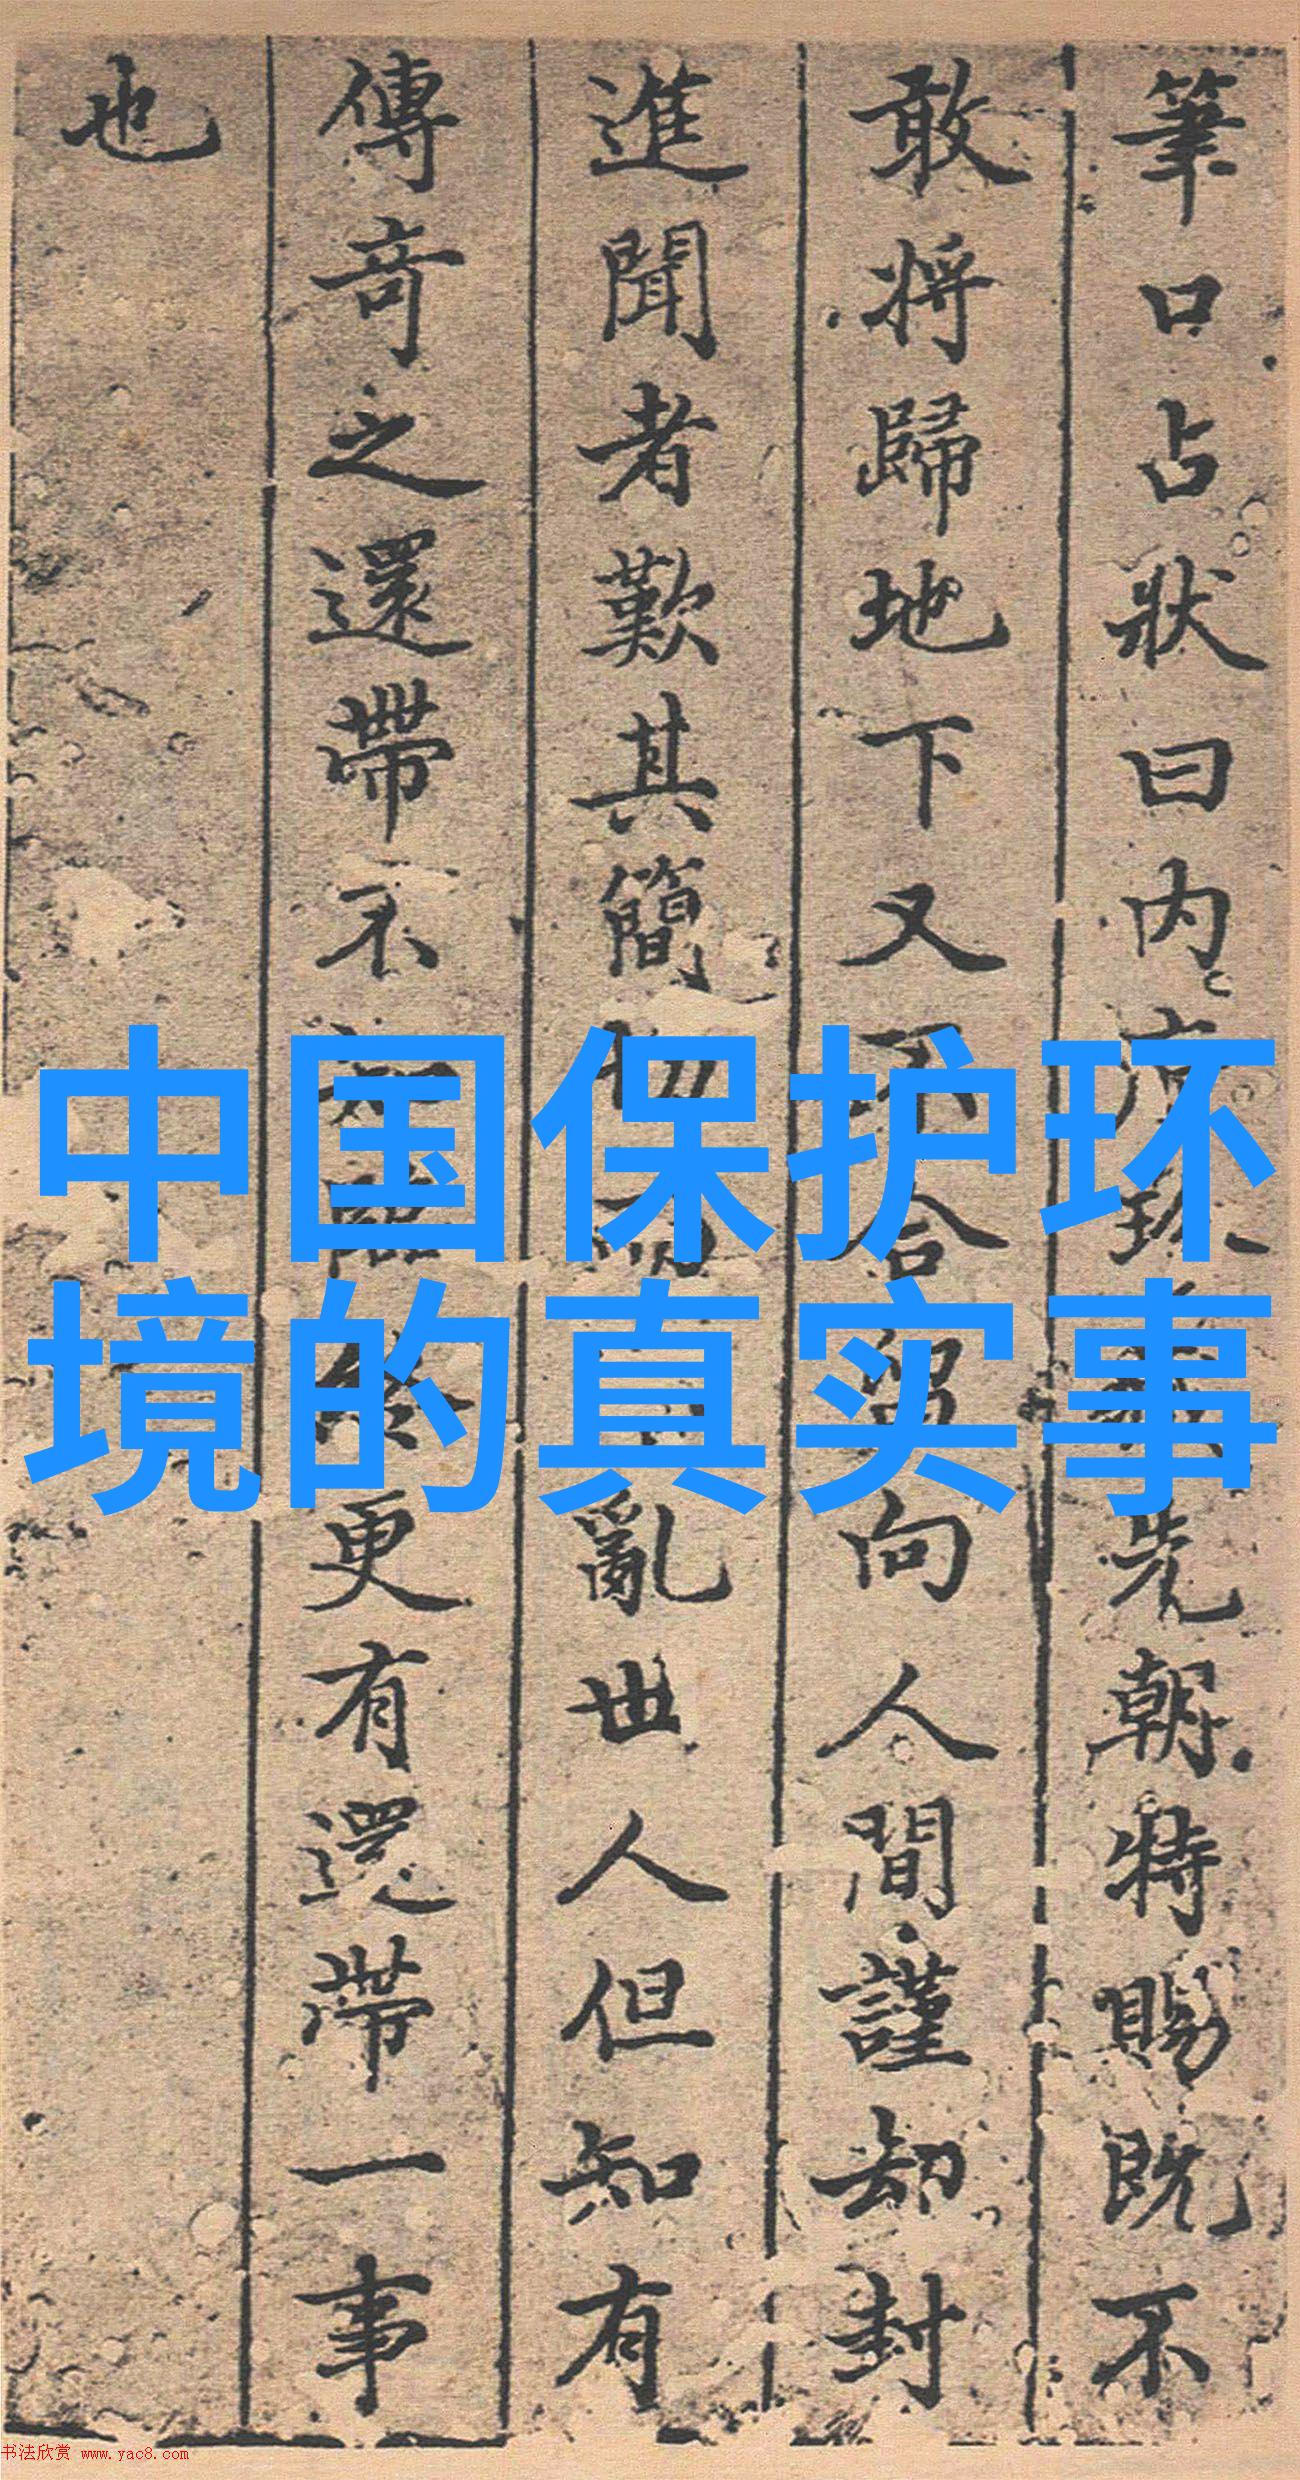 筆口占狀曰内府珠先朝特賜既不
敢將歸地下又不合留向人間謹却封
進聞者歎其簡切亂世人但知有
傳奇之還帶不知更有還帶一事
也
中国保护环
境的真实事
书法欣赏 www.yac8.com